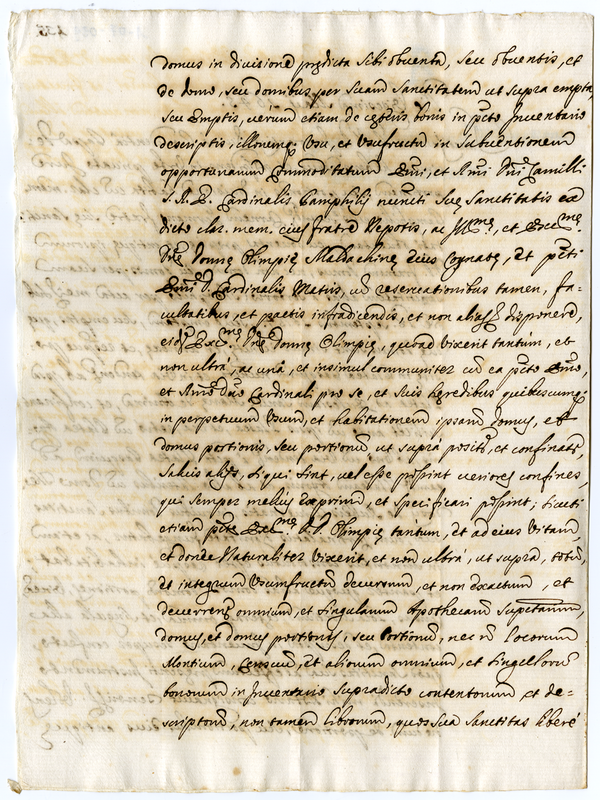 domus in divisione prędicta sibi obventa, seu obventis, et
de domo, seu domibus per suam Sanctitatem ut supra empta,
seu emptis, verum etiam de cęteris bonis in pcto Inventario
descriptis, illorumq; Usu, et Usufructu in subventionem
opportunarum commoditatum Emi, et Rmi Dni Camilli
S. R. E. Cardinalis Pamphilij nuncti Suę Sanctitatis ex
dicto clar. mem. eius fratre Nepotis, ac Illme, et Eccme
Dnę Donnę Olimpię Maldachinę eius Cognatę, et pcti
Emi D. Cardinalis Matris, cu reservationibus tamen, fa-
cultatibus, et pactis infradicendis, et non alias disponere,
eidę Eccme Dnę Donnę Olimpię, quoad vixerit tantum, et
non ultra, ac una, et insimul communiter cu eo pcto Emo,
et Rmo Dno Cardinali pro se, et suis hęredibus quibuscumq;
in perpetuum Usum, et habitationem ipsarũ domus, et
domus portionis, seu portionũ, ut supra posit, et confinat,
salvis alijs, si qui sint, vel esse possint veriores confines,
qui semper melius exprimi, et specificari possint; sicuti
etiam pctę Eccmę D. D. Olimpię tantum, et ad eius vitam,
et donec Naturaliter vixerit, et non ultra, ut supra, totũ,
et integrum Usumfructũ decursum, et non exactum, et
decurrenđ omnium, et singularum Apothecarũ suppctarum,
domus, et domus portionis, seu Portionũ, nec nõ locorum
Montium, Censuũ, et aliorum omnium, et singulorũ
bonorum in Inventario supradicto contentorum et de-
scriptorũ, non tamen librorum, quos sua Sanctitas liberè